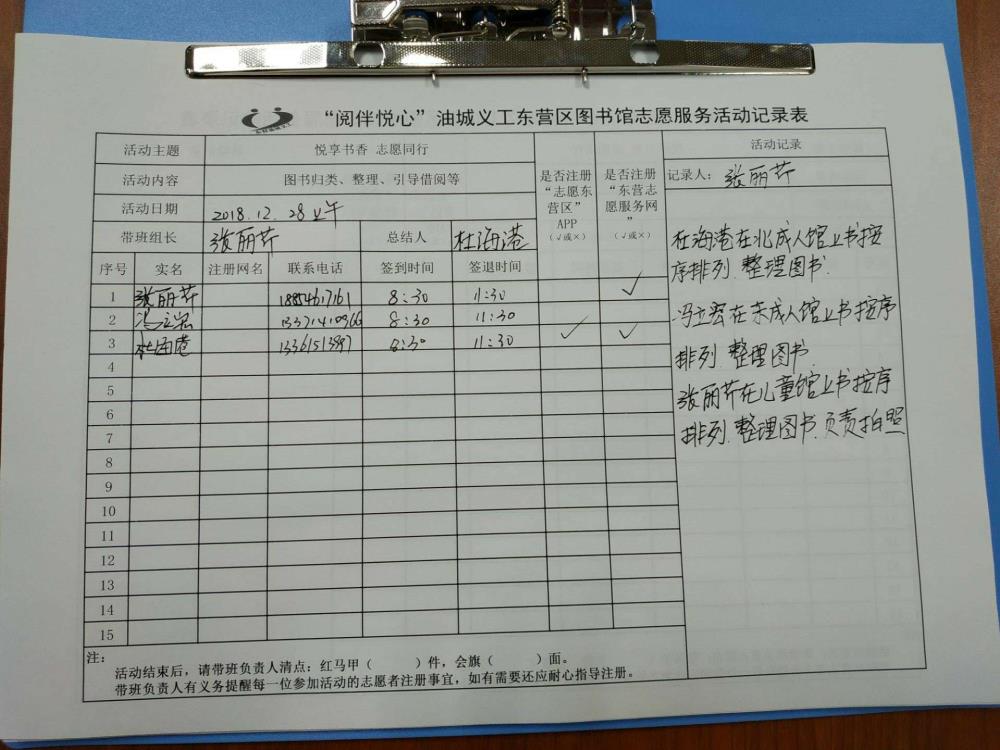 “阅伴悦心”油城义工东营区图书馆志愿服务活动记录表
活动主题 悦享书香 志愿同行
活动内容 图书归类、整理、引导借阅等
活动日期 2018.12.28上午
带班组长 张丽芹 总结人 杜海港
是否注册“志愿东营区”APP（√或×）
是否注册“东营志愿服务网”（√或×）
活动记录
记录人：张丽芹
序号 实名 注册网名 联系电话 签到时间 签退时间
1 张丽芹 8:30 11:30 √
2 13371410966 8:30 11:30
3 杜海港 13361513897 8:30 11:30 √ √
4
5
6
7
8
9
10
11
12
13
14
15
杜海港在北成人馆上书按
序排列.整理图书.
冯立宏在未成人馆上书按序
排列.整理图书.
张丽芹在儿童馆上书按序
排列.整理图书.负责拍照
注：
活动结束后，请带班负责人清点：红马甲（ ）件，会旗（ ）面。
带班负责人有义务提醒每一位参加活动的志愿者注册事宜，如有需要还应耐心指导注册。